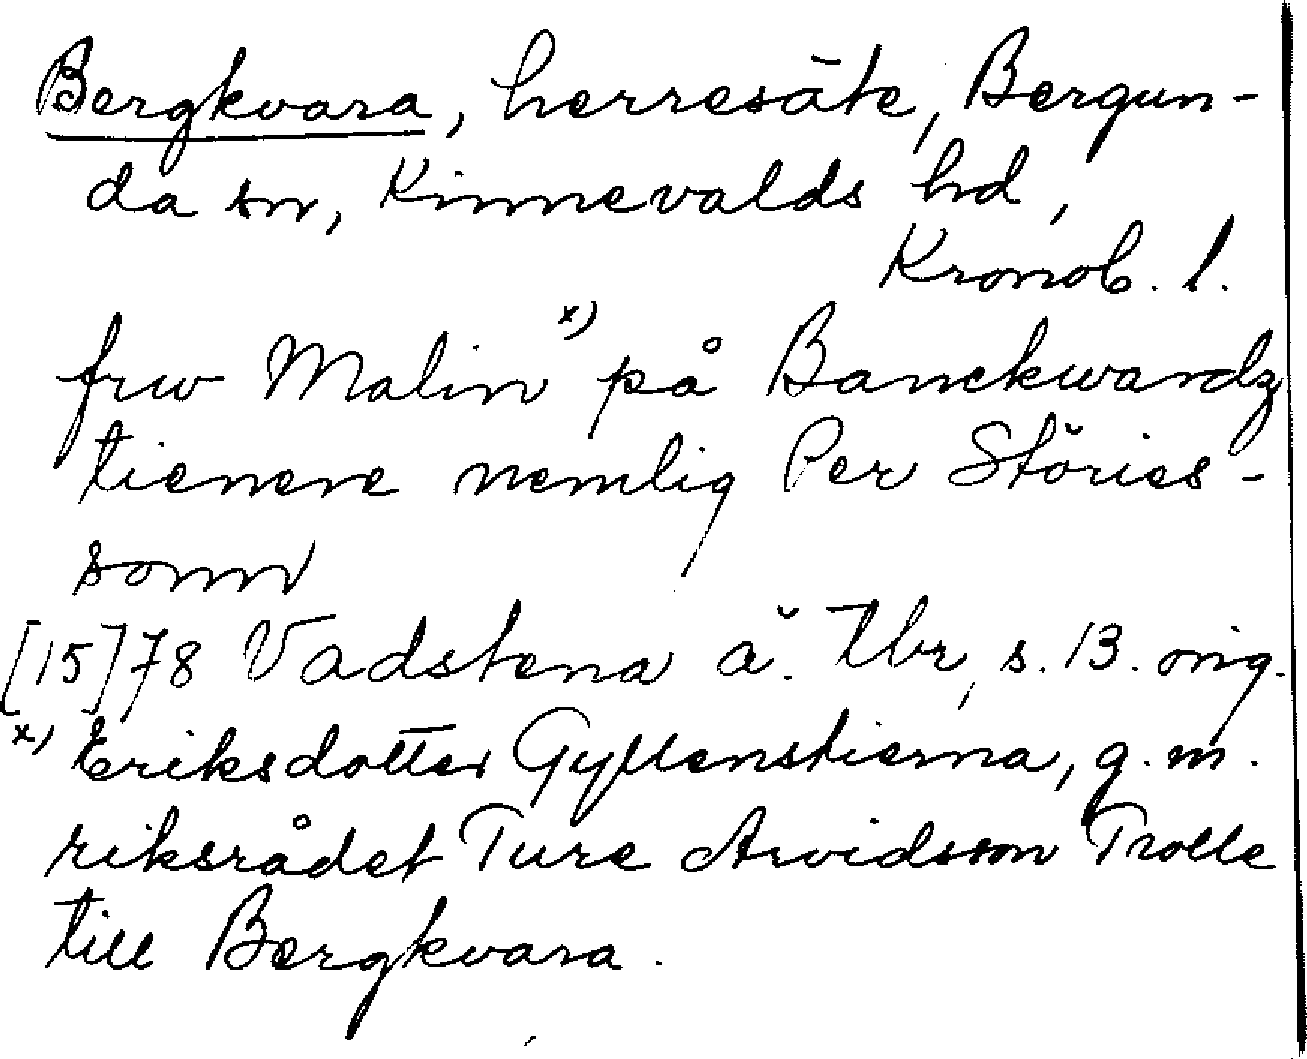 Bergkvara, herresäte, Bergun-
da sn, Kinnevalds hd,
Kronob. l.
frw Malin x) på Banckwardz
tienere nemlig Per Störies-
sonn
[15]78 Vadstena ä. tbr, s. 13. orig.
x) Eriksdotter Gyllenstierna, g. m.
riksrådet Ture Arvidsson Trolle
till Bergkvara.